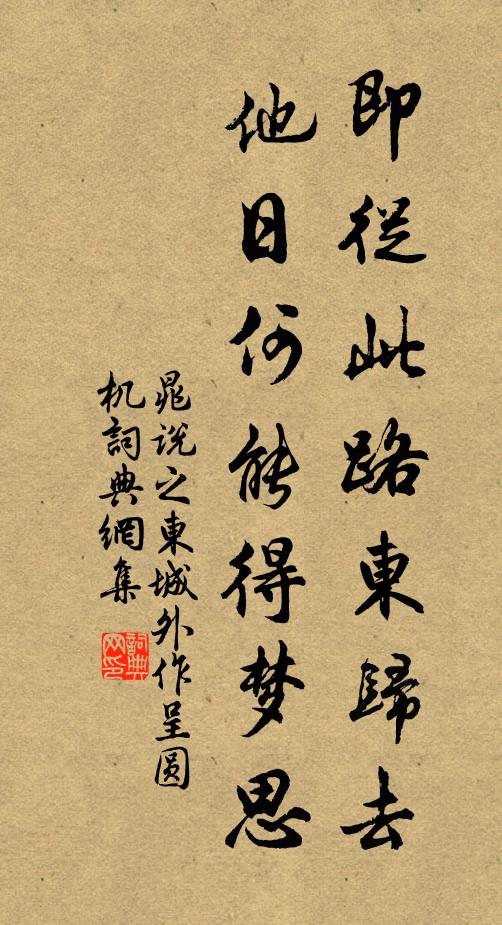 即從此路東歸去
他日何能得梦思
晁说之東城外作呈圆
机詞典網集
詞典
网印